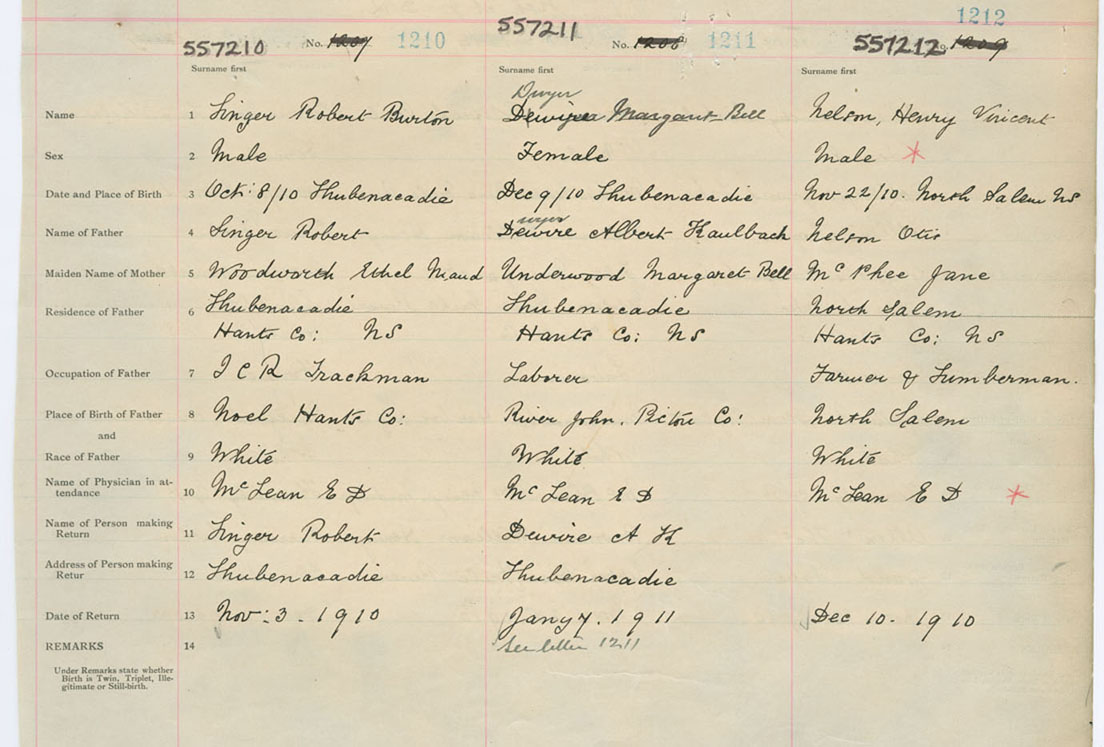 1212
557210 No. 1209 1210 557211 No. 1208 1211 557212 1209
Surname first Surname first Surname first
Dwyer
Name 1 Singer Robert Burton Margaret Bell Nelson, Henry Vincent
Sex 2 Male Female Male *
Date and Place of Birth 3 Oct: 8/10 Shubenacadie Dec 9/10 Shubenacadie Nov 22/10. North Salem NS
wyer
Name of Father 4 Singer Robert Dewire Albert Kaulback Nelson Otis
Maiden Name of Mother 5 Woodworth Ethel Maud Underwood Margaret Bell Mc Phee Jane
Residence of Father 6 Shubenacadie Shubenacadie North Salem
Hants Co: NS Hants Co: NS Hants Co: NS
Occupation of Father 7 I C R Trackman Laborer Farmer & Lumberman.
Place of Birth of Father 8 Noel Hants Co: River John. Pictou Co: North Salem
and
Race of Father 9 White White White
Name of Physician in at-
tendance 10 Mc Lean E D Mc Lean E D Mc Lean E D *
Name of Person making
Return 11 Singer Robert Dewire A K
Address of Person making
Retur 12 Shubenacadie Shubenacadie
Date of Return 13 Nov: 3. 1910 Jany 7. 1911 Dec 10. 1910
REMARKS 14 See letter 1211
Under Remarks state whether
Birth is Twin, Triplet, Ille-
gitimate or Still-birth.